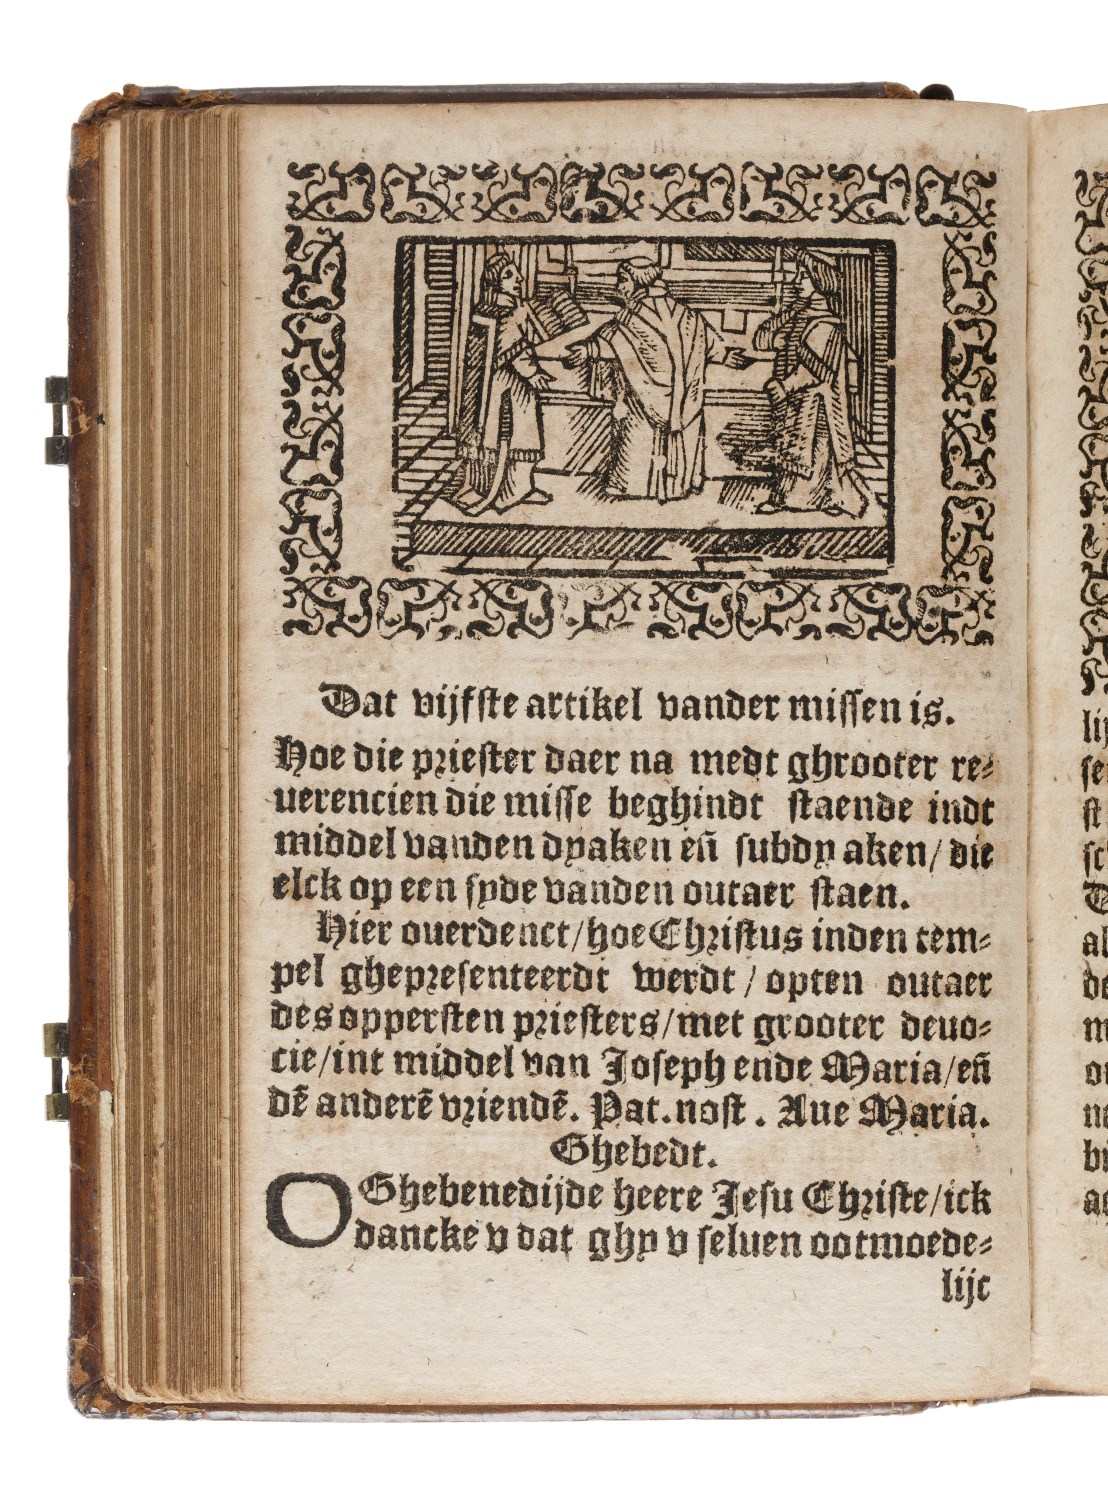 Dat vijfste artikel vander missen is.
Hoe die priester daer na medt ghrooter re⸗
uerencien die misse beghindt staende indt
middel vanden dyaken eñ subdyaken/ die
elck op een syde vanden outaer staen.
Hier ouerdenct/hoe Christus inden tem⸗
pel ghepresenteerdt werdt/ opten outaer
des oppersten priesters/met grooter deuo⸗
tie/int middel van Joseph ende Maria/eñ
dẽ anderẽ vriendẽ. Pat.nost. Aue Maria.
Ghebedt.
O Ghebenedijde heere Jesu Christe/ick
dancke v dat ghy v seluen ootmoede⸗
lijc
lij
se
st
sc
al
de
m
ne
bi